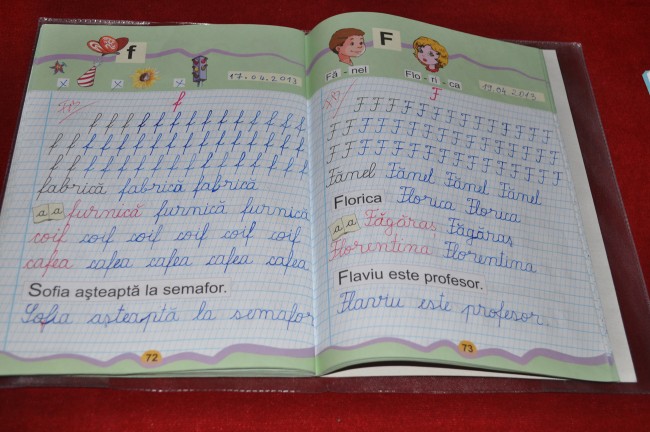 f
17.04.2013
f
f f f f f f f f f f f f f f
f f f f f f f f f f f f f f f f
f f f f f f f f f f f f f f f f
fabrică fabrică fabrică
a a furnică furnică furnică
coif coif coif coif coif coif
cafea cafea cafea cafea cafea
Sofia aşteaptă la semafor.
Sofia aşteaptă la semafor
72
F
Fă - nel
Flo - ri - ca
19.04.2013
F
F F F F F F F F F F F F F F
F F F F F F F F F F F F F F F
F F F F F F F F F F F F F F F
Fănel Fănel Fănel Fănel
Florica Florica Florica
a a Făgăraş Făgăraş
Florentina Florentina
Flaviu este profesor.
Flaviu este profesor.
73